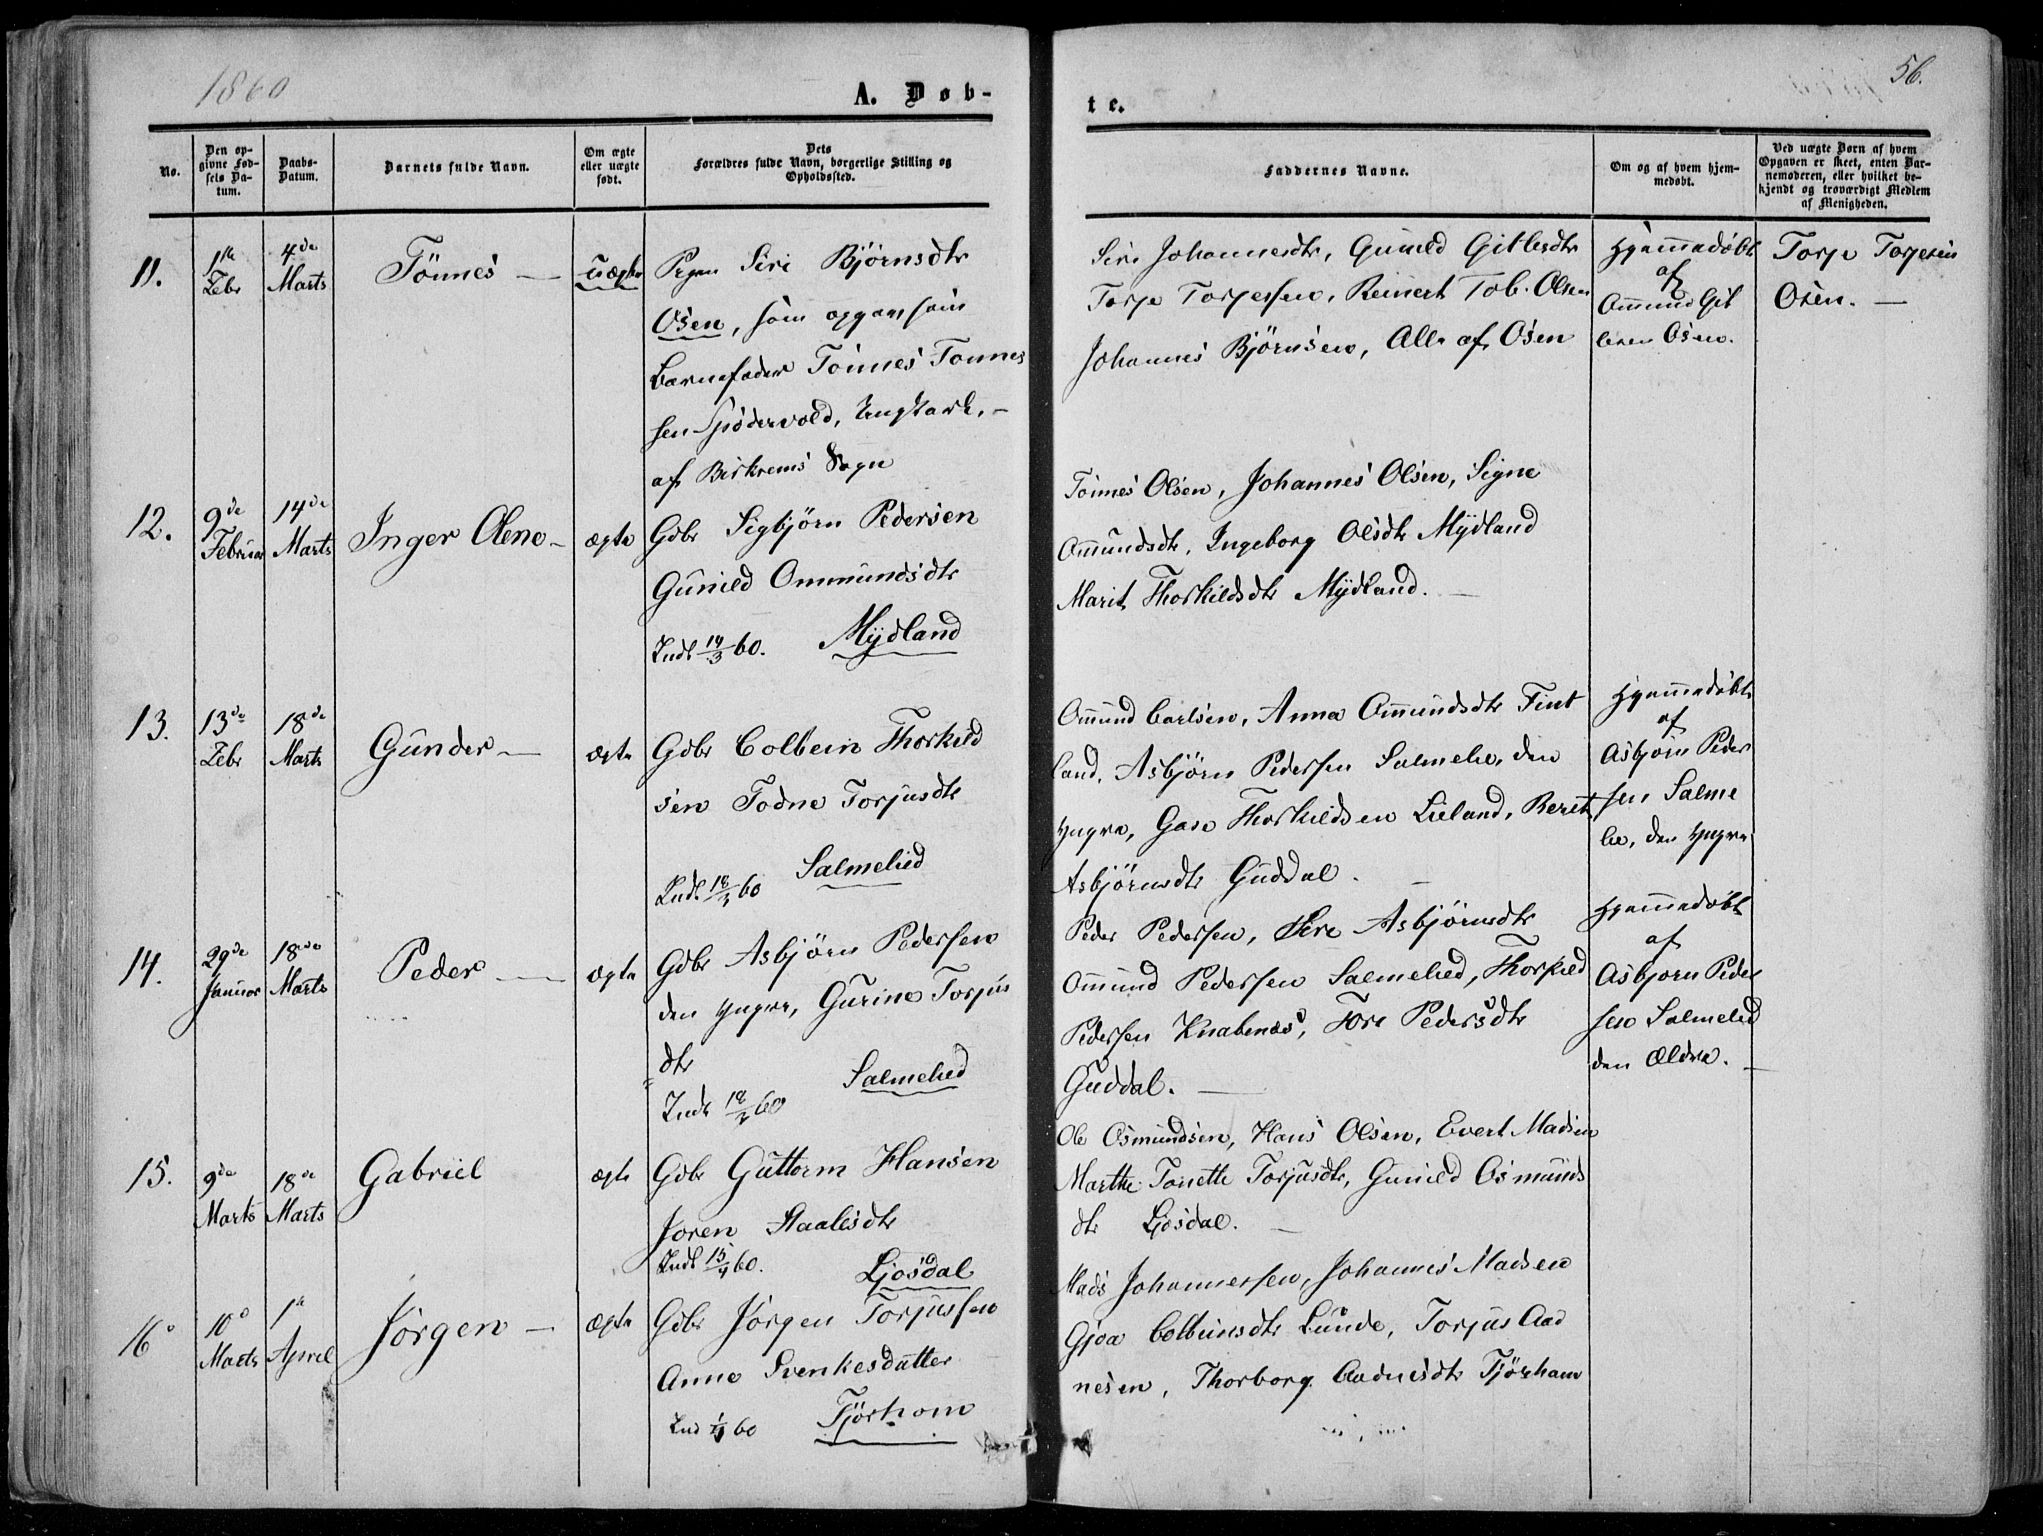 1860
A. Døb-
te.
56.
No.
Den op-
givne Fød-
sels Da-
tum.
Daabs-
Datum.
Barnets fulde Navn.
Om ægte
eller uægte
født.
Dets
Forældres fulde Navn, borgerlige Stilling og
Opholdssted.
Faddernes Navne.
Om og af hvem hjem-
medøbt.
Ved uægte Børn af hvem
Opgaven er skeet, enten Bar-
nemoderen, eller hvilket be-
kjendt og troværdigt Medlem
af Menigheden.
11.
1ste
Febr
4de
Marts
Tönnes —
uægte
Pigen Siri Bjørnsdtr
Osen, som opgav som
Barnefader Tönnes Tönnes
sen Spödervold, Ungkarl, -
af Birkrems Sogn
Siri Johannesdtr, Gunild Gitlesdtr
Torje Torjessen, Reinert Tob. Olsen
Johannes Bjørnsen, Alle af Osen
Hjemmedøbt
af
Ommund Git
lesen Osen.
Torje Torjesen
Osen. —
12.
9de
Februar
14de
Marts
Inger Olene —
ægte
Gdbr Sigbjörn Pedersen
Gunild Ommundsdtr
Indt 14/3 60. Mydland
Tönnes Olsen, Johannes Olsen, Signe
Omundsdtr, Ingeborg Olsdtr Mydland
Marit Thorkildsdtr Mydland. —
13.
13de
Febr
18de
Marts
Gunder —
ægte
Gdbr Colbein Thorkild
sen Todne Torjusdtr
Indt 18/3 60 Salmelied
Omund Carlsen, Anna Omundsdtr Fint
land, Asbjörn Pedersen Salmelie, den
yngre, Gase Thorkildsen Lieland, Berit
Asbjörnsdtr Guddal. —
Hjemmedøbt
af
Asbjörn Peder
sen Salme
lie, den yngre
14.
29de
Januar
18de
Marts
Peder —
ægte
Gdbr Asbjörn Pedersen
den yngre, Gurine Torjus
dtr
Indt 18/3 60 Salmelied
Peder Pedersen, Sire Asbjörnsdtr
Omund Pedersen Salmelied, Thorkild
Pedersen Knabenæs, Tore Pedersdtr
Guddal. —
Hjemmedøbt
af
Asbjorn Peder
sen Salmelied
den Ældre. —
15.
9de
Marts
18de
Marts
Gabriel
ægte
Gdbr Guttorm Hansen
Joren Staalesdtr
Indt 15/4 60. Ljosdal
Ole Osmundsen, Hans Olsen, Evert Madsen
Marthe Tonette Torjusdtr, Gunild Osmunds
dtr Ljosdal. —
16
10
Marts
1
April
Jörgen —
ægte
Gdbr Jörgen Torjussen
Anne Svenkesdatter
Ind 1/4 60 Tjörhom
Mads Johannessen, Johannes Madsen
Gjoa Colbeinsdtr Lunde, Torjus Aad
nesen, Thorborg Aadnesdtr Tjörhom